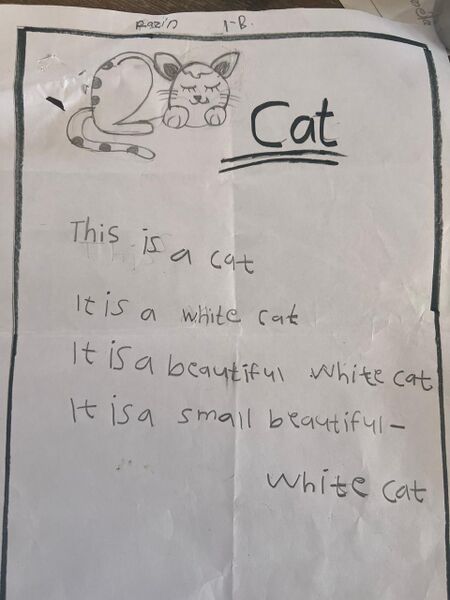 Razin 1-B.
Cat
This is a cat
It is a white cat
It is a beautiful white cat
It is a small beautiful-
white cat